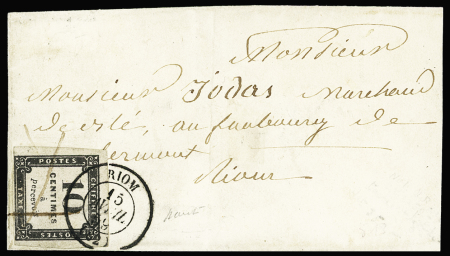 Monsieur
Monsieur Jodas Marchand
de blé, au faubourg de
clermont
Riom
POSTES
CHIFFRE
TAXE
10
CENTIMES
à
percevoir
POSTES
RIOM
15